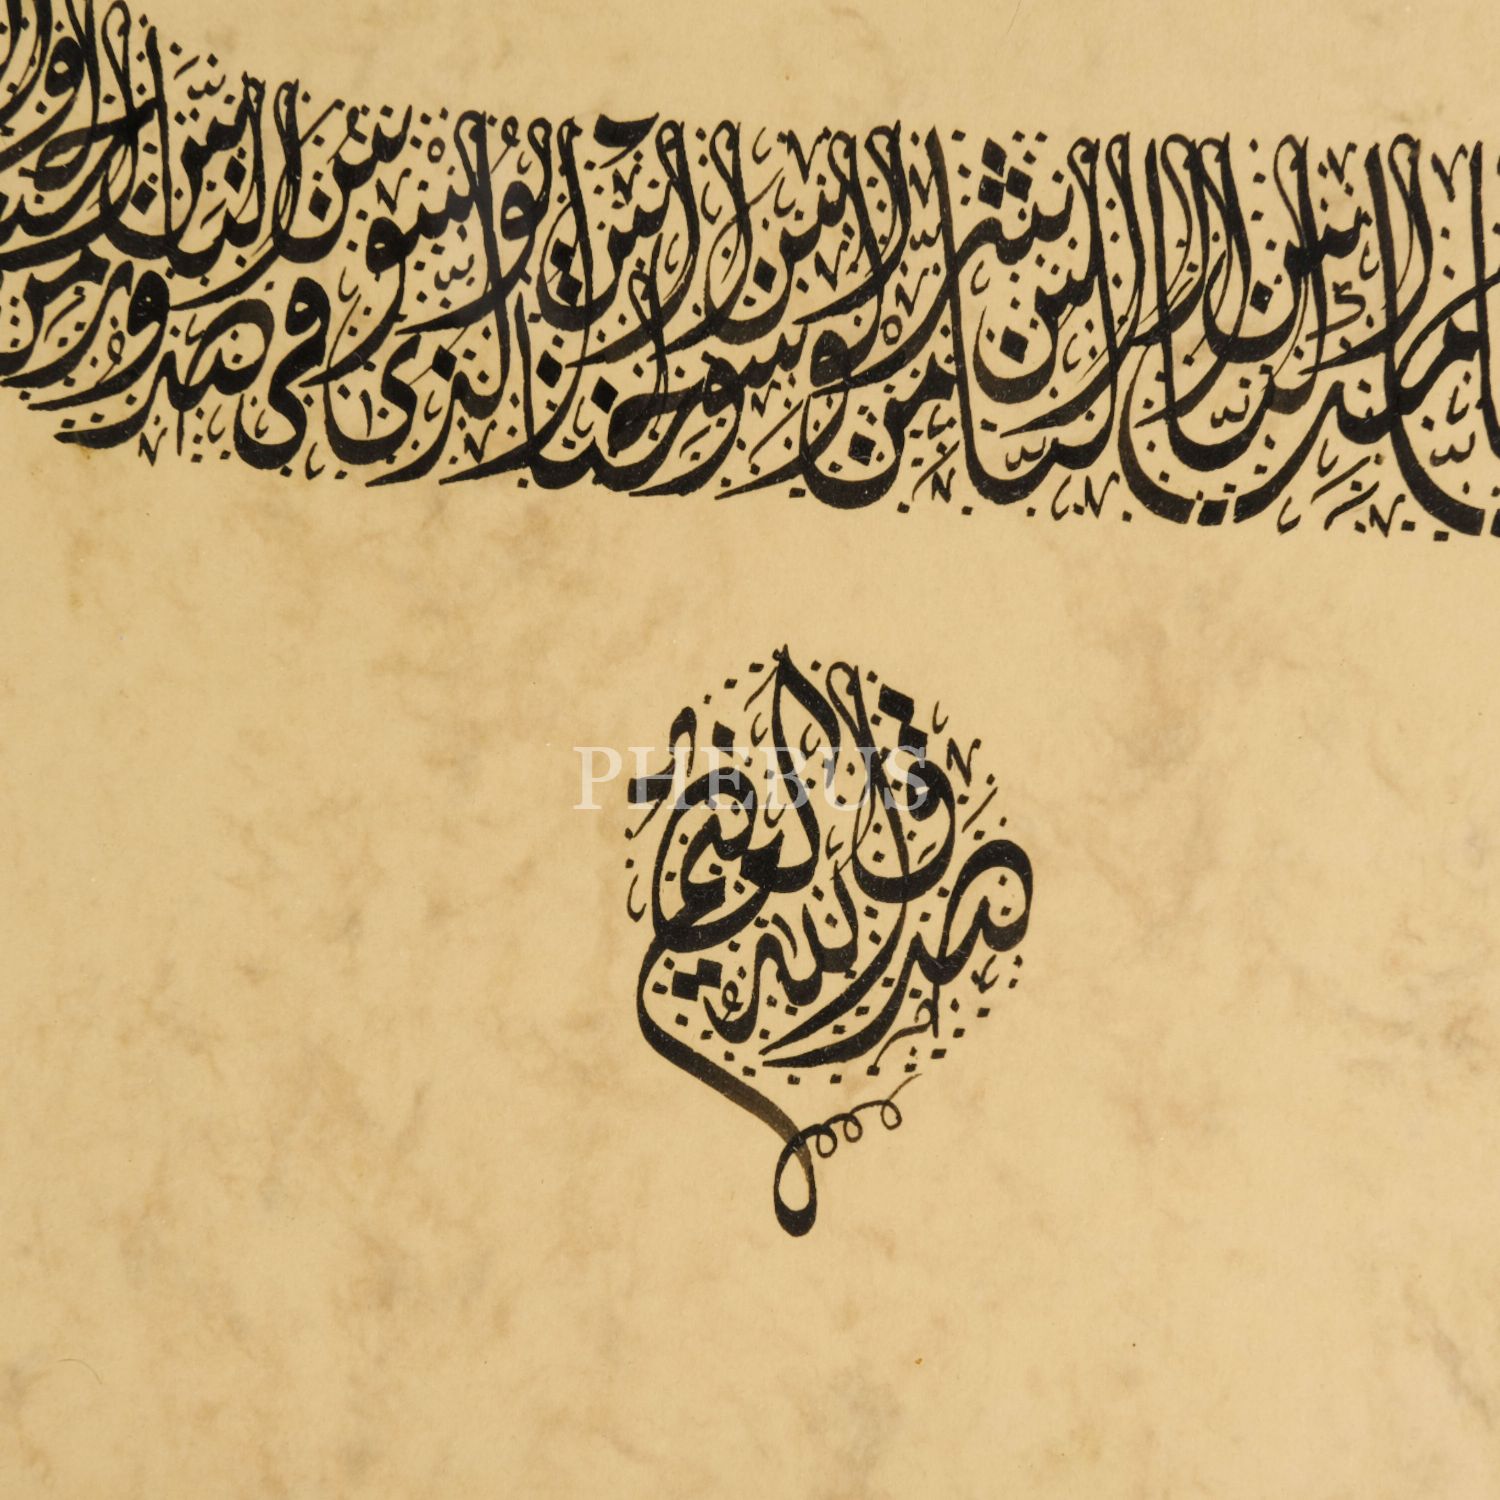 ملك الناس إله الناس من شر الوسواس الخناس الذي يوسوس في صدور الناس من
صدق الله العظيم
PHEBUS